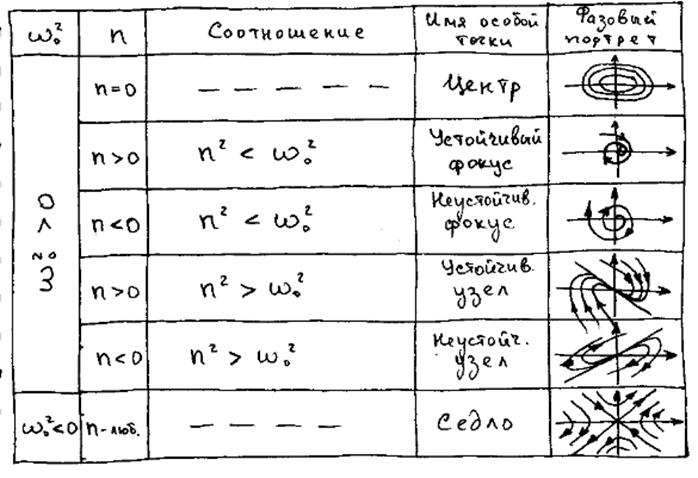 ω₀² n Соотношение Имя особой точки Фазовый портрет
n=0 — — — — — Центр
n>0 n² < ω₀² Устойчивый фокус
n<0 n² < ω₀² Неустойчив. фокус
ω₀² > 0
n>0 n² > ω₀² Устойчив. узел
n<0 n² > ω₀² Неустойч. узел
ω₀²<0 n-люб. — — — — Седло